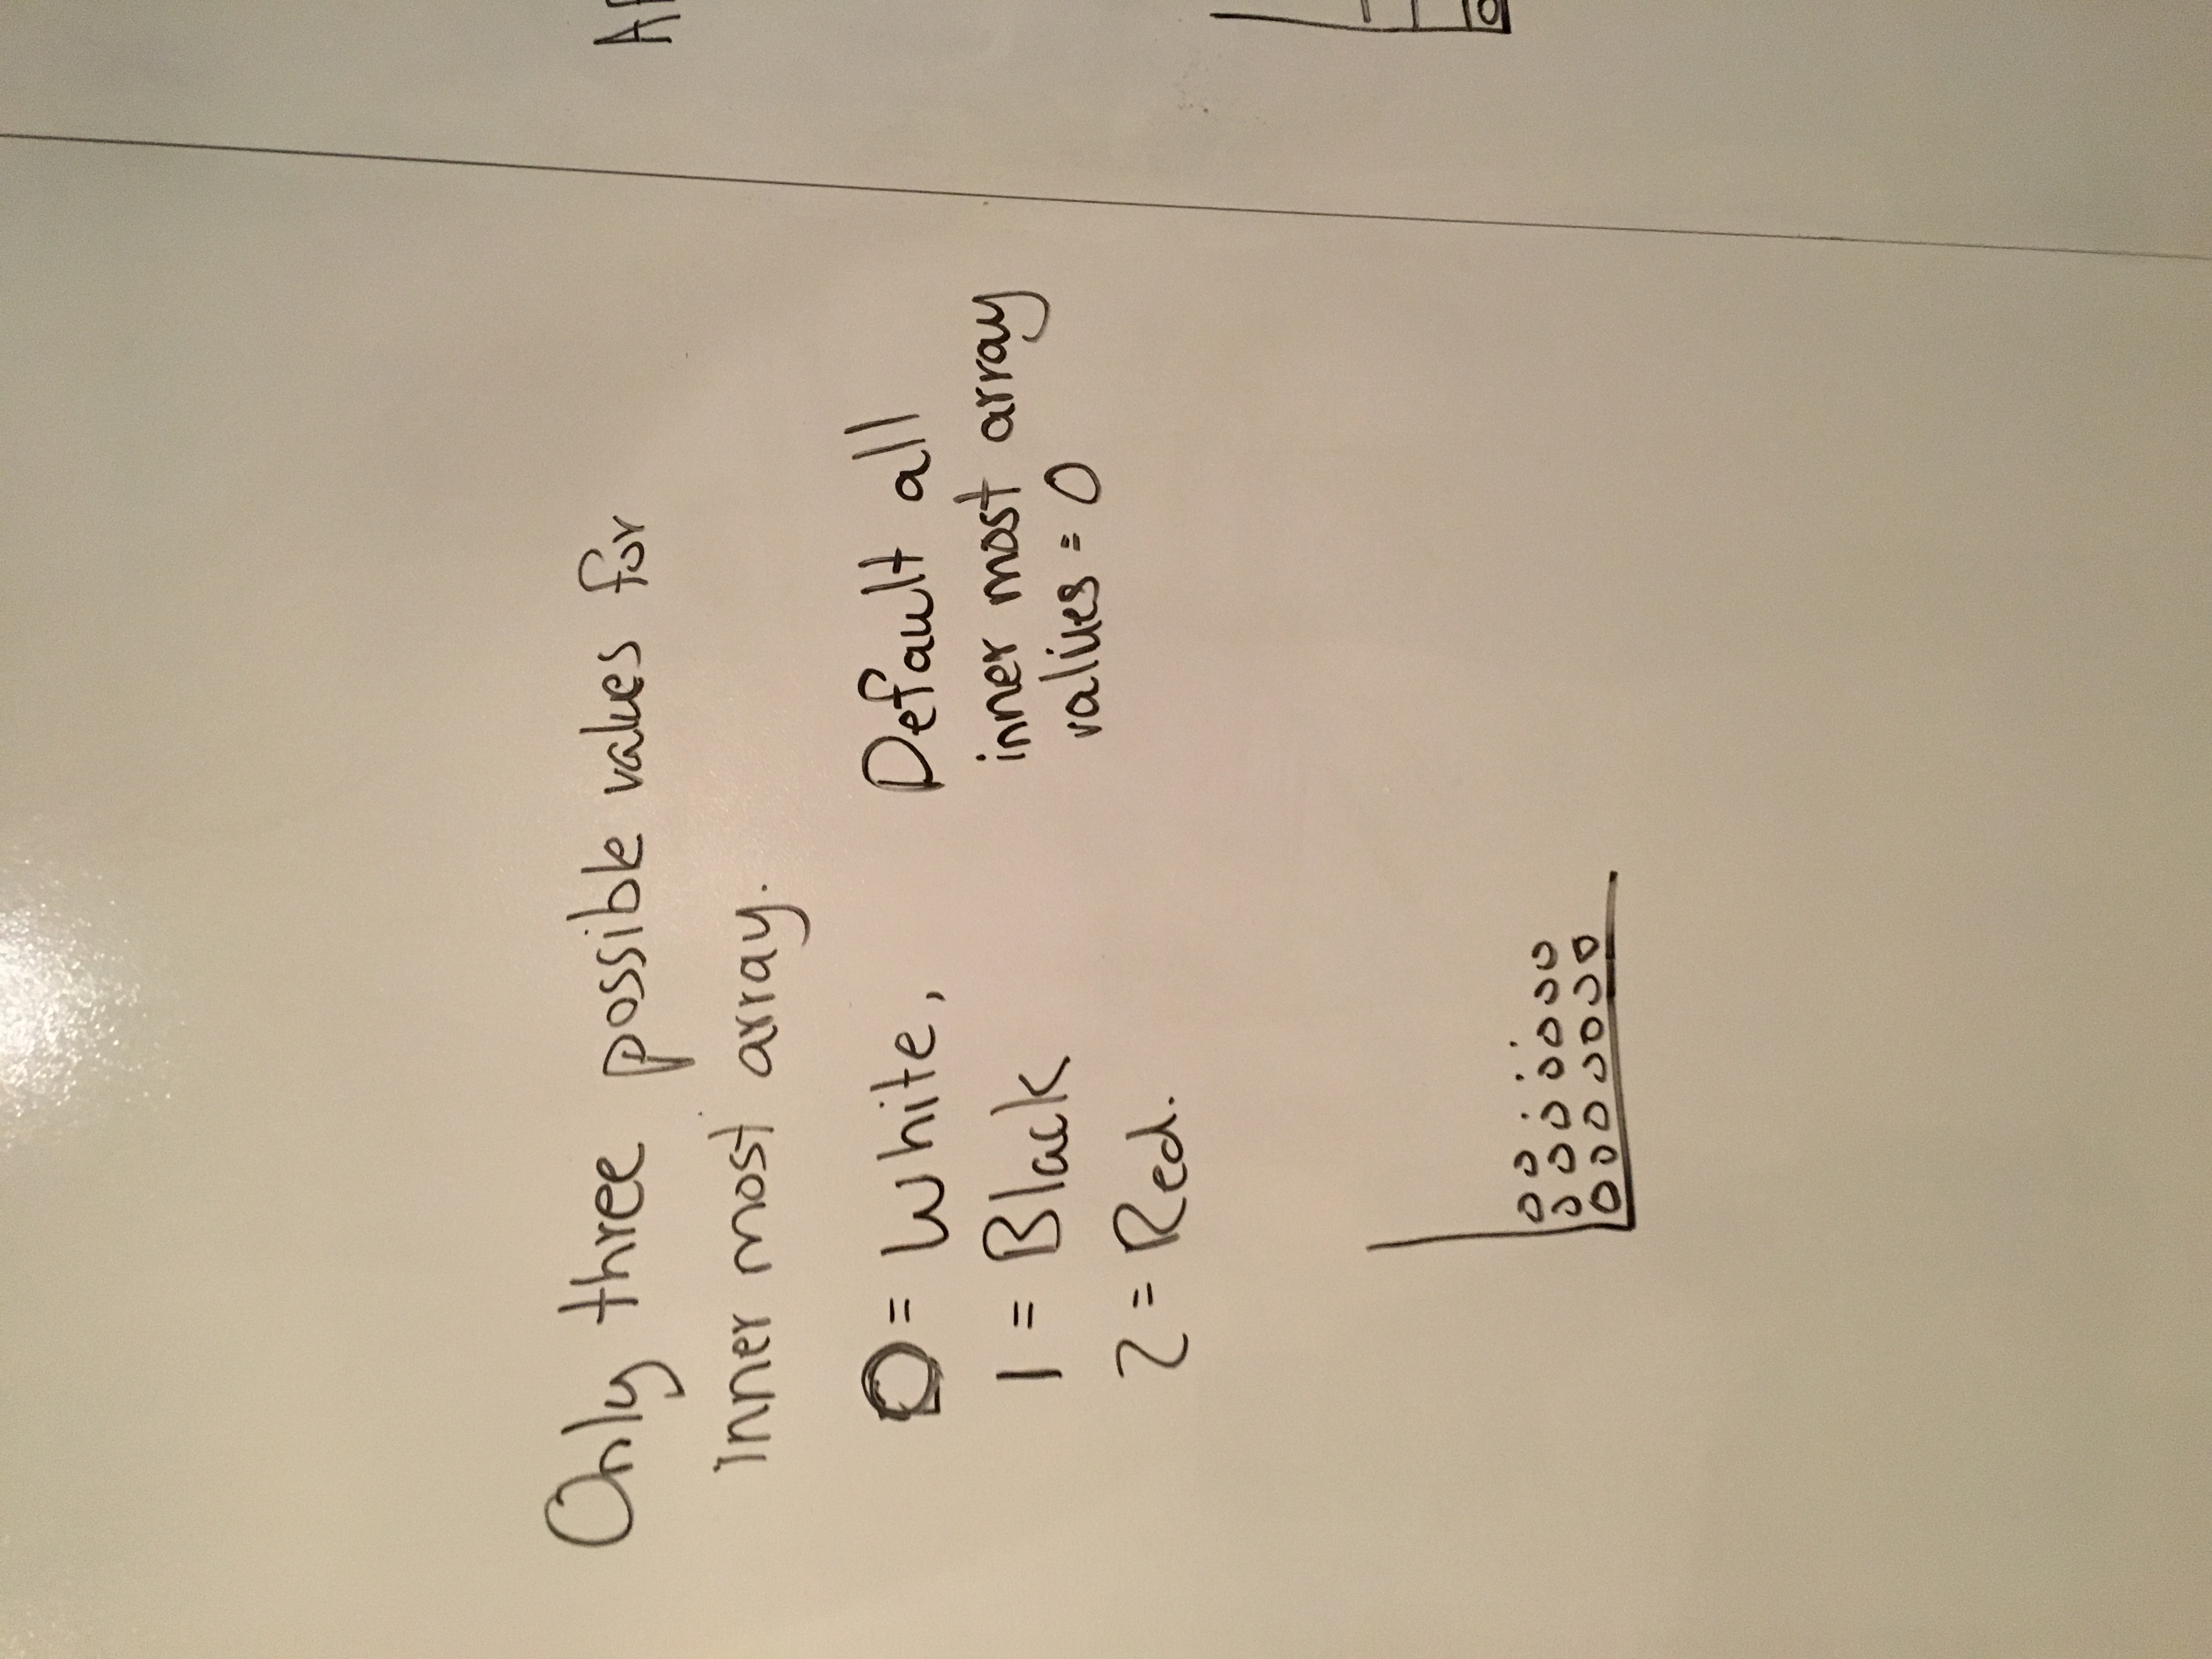 Only three possible values for
inner most array.
0 = White,
1 = Black
2 = Red.
Default all
inner most array
values = 0
0 0 . . .
0 0 0 0 0 0 0
0 0 0 0 0 0 0